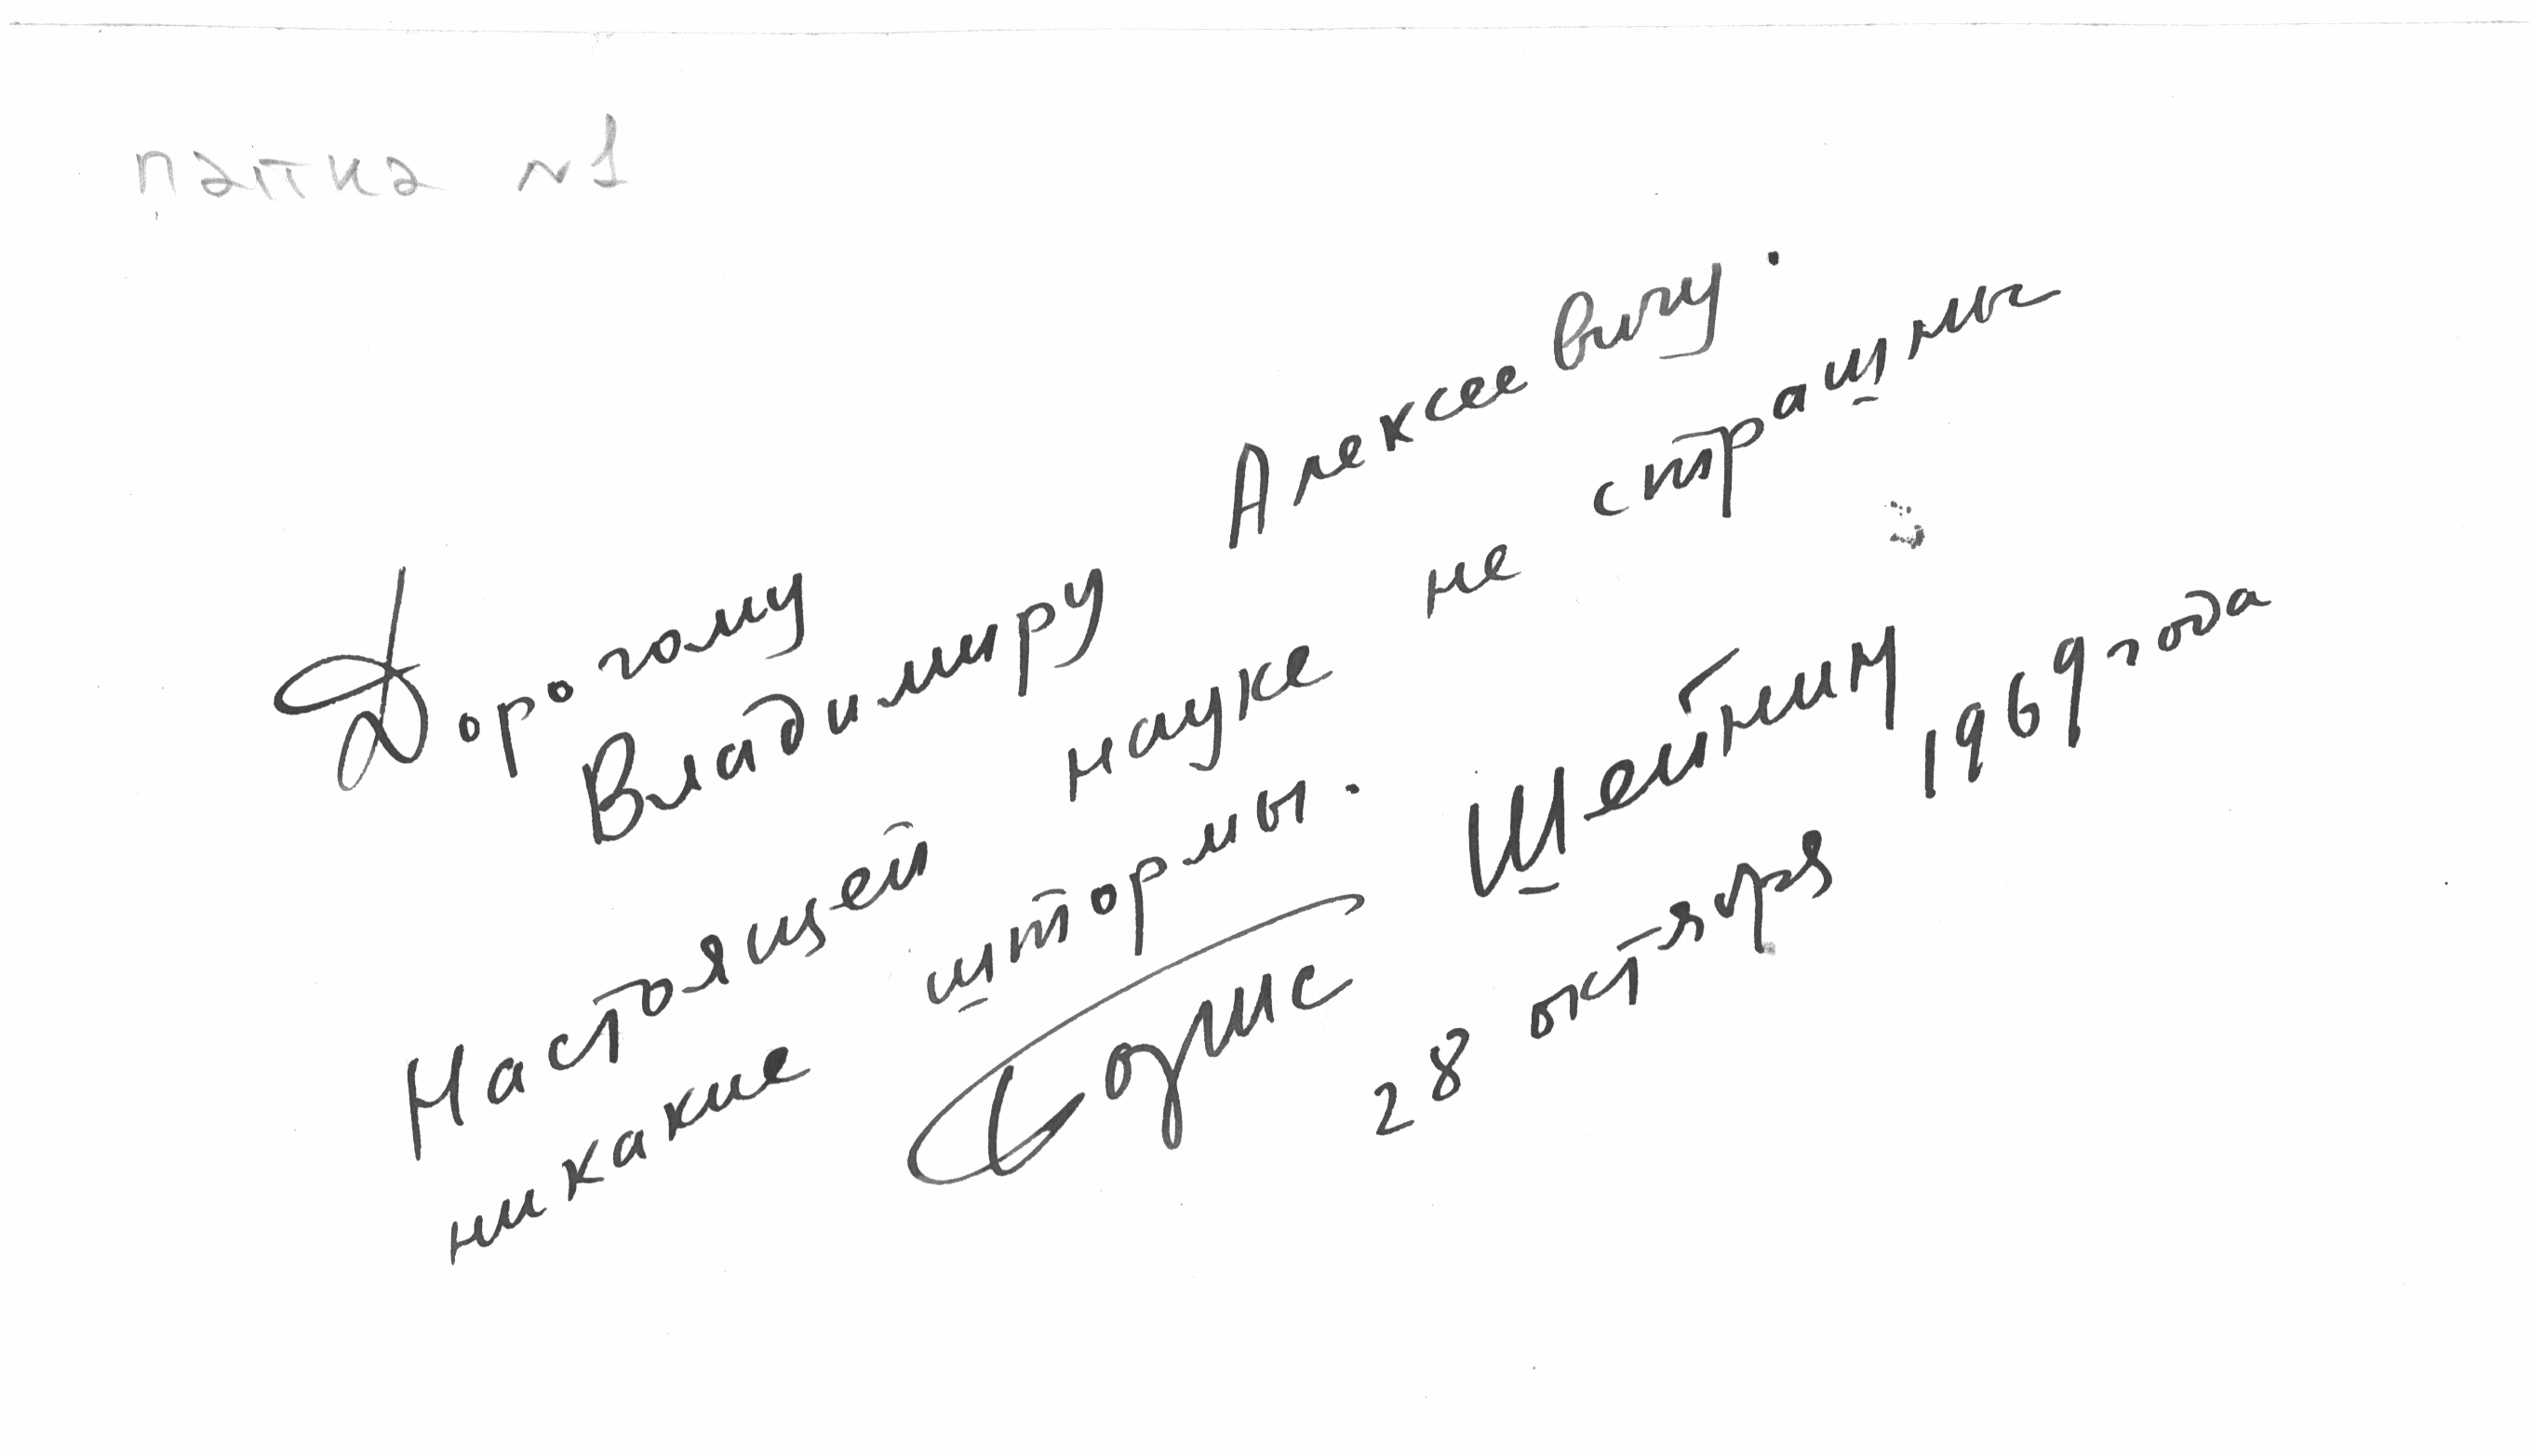 папка №1
Дорогому
Владимиру Алексеевичу.
Настоящей науке не страшны
никакие штормы.
Борис Шейнин
28 октября 1969 года